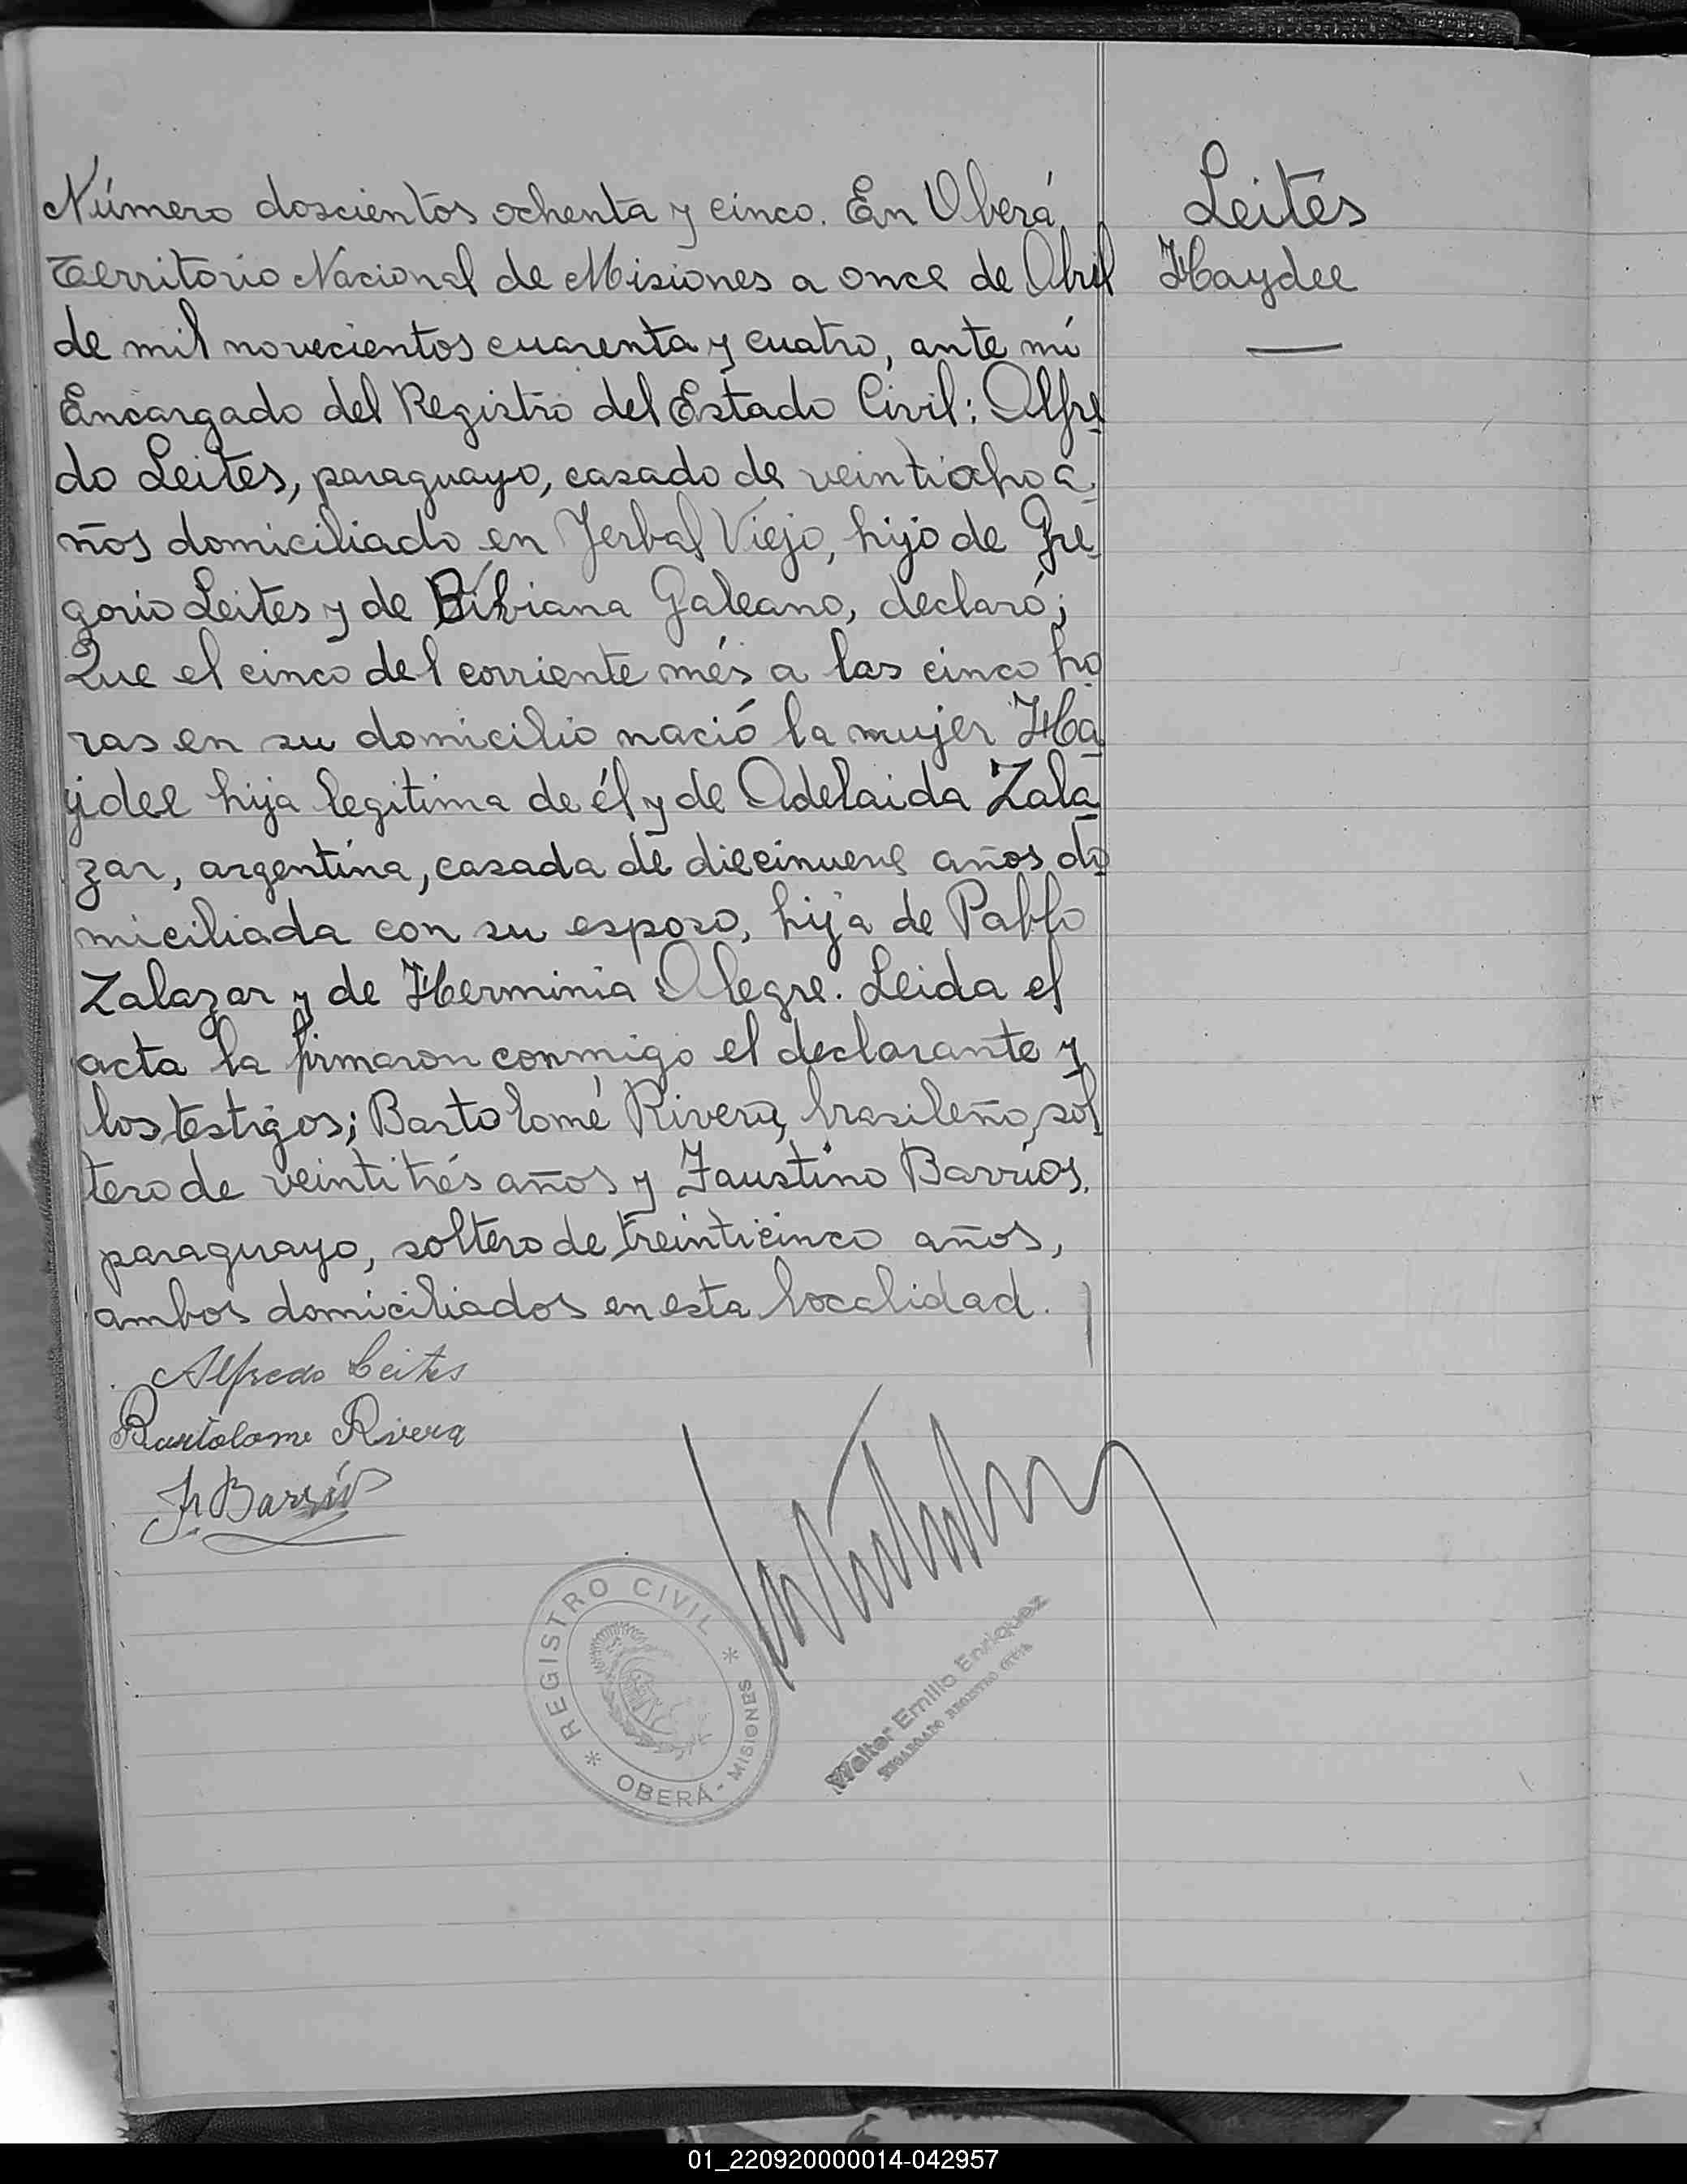 Número doscientos ochenta y cinco. En Oberá
Territorio Nacional de Misiones a once de Abril
de mil novecientos cuarenta y cuatro, ante mí
Encargado del Registro del Estado Civil: Alfre
do Leites, paraguayo, casado de veintiocho a
ños domiciliado en Yerbal Viejo, hijo de Gre
gorio Leites y de Bibiana Galeano, declaró;
Que el cinco del corriente més a las cinco ho
ras en su domicilio nació la mujer Ha
ydee hija legitima de él y de Adelaida Zala
zar, argentina, casada de diecinueve años do
miciliada con su esposo, hija de Pablo
Zalazar y de Herminia Alegre. Leida el
acta la firmaron conmigo el declarante y
los testigos; Bartolomé Rivera, brasileño, sol
tero de veintitrés años y Faustino Barrios,
paraguayo, soltero de treinticinco años,
ambos domiciliados en esta localidad.
Leites
Haydee
Alfredo Leites
Bartolome Rivera
F. Barrios
* REGISTRO CIVIL *
OBERÁ - MISIONES
Walter Emilio Enriquez
ENCARGADO REGISTRO CIVIL
01_220920000014-042957